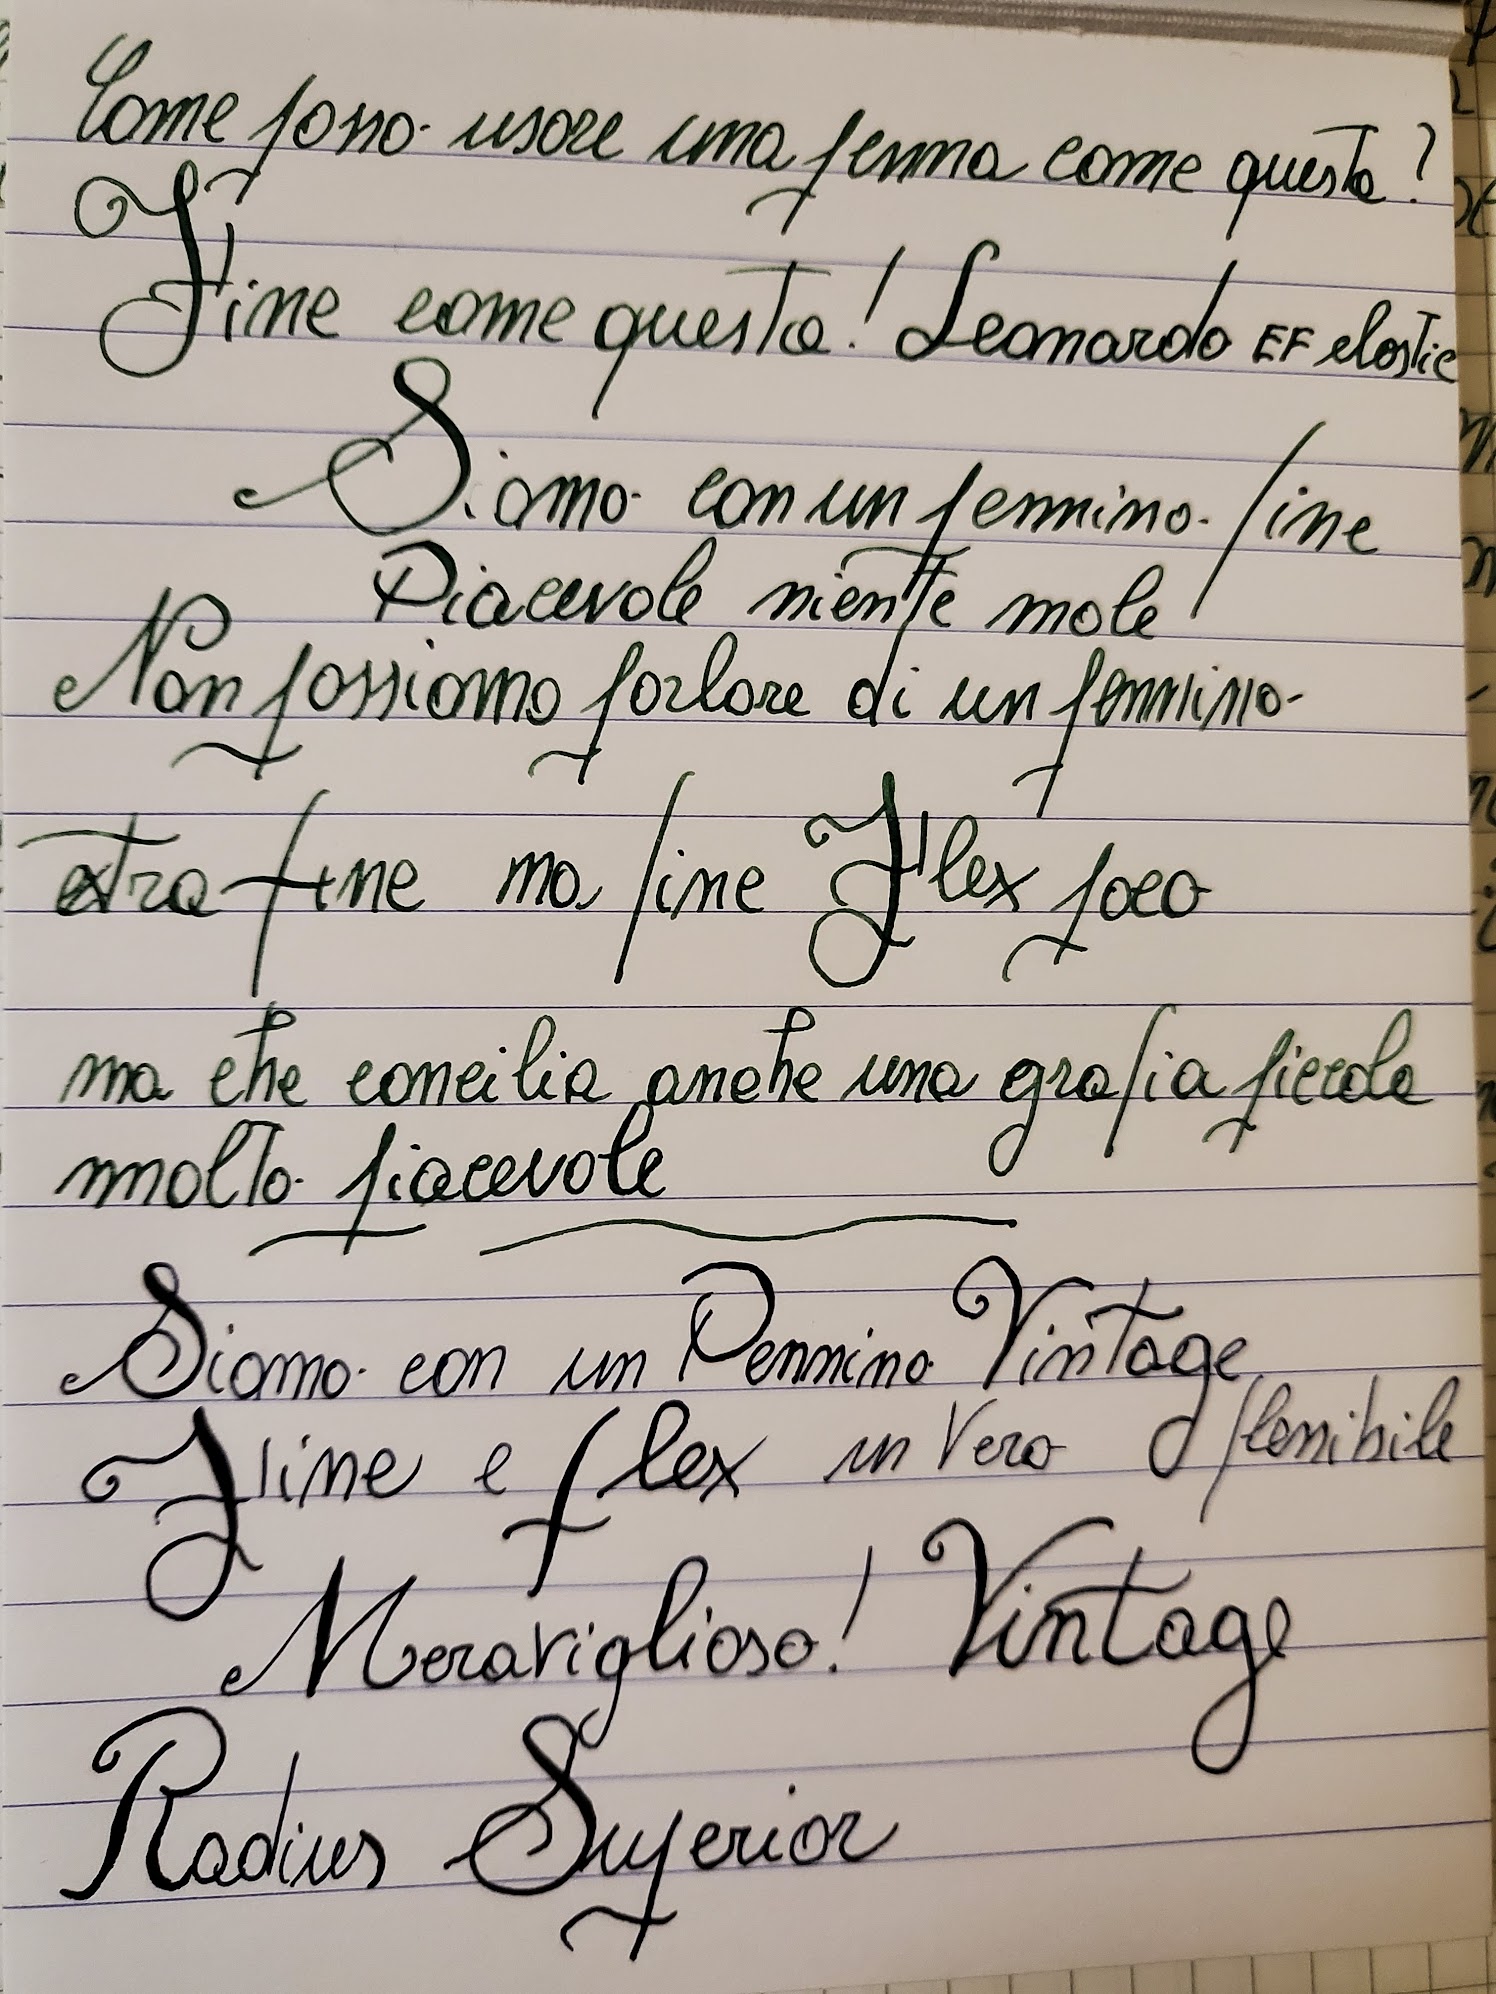 Come posso usare una penna come questa?
Fine come questa! Leonardo EF elastic
Siamo con un pennino fine
Piacevole niente male
Non possiamo parlare di un pennino
extra fine ma fine Flex poco
ma che concilia anche una grafia piccola
molto piacevole
Siamo con un Pennino Vintage
Fine e flex in vero flessibile
Meraviglioso! Vintage
Radius Superior